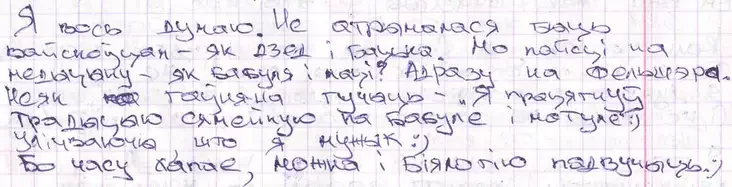 Я вось думаю. Не атрымалася быць
вайскоўцам - як дзед і бацька. Мо пайсці на
медыцыну - як бабуля і маці? Адразу на фельчара.
Неяк таўма-на гучыць - "Я працягнуў
традыцыю сямейную па бабуле і матуле:)
улічваючы, што я мужык:)
Бо часу хапае, можна і біялогію падвучыць:)